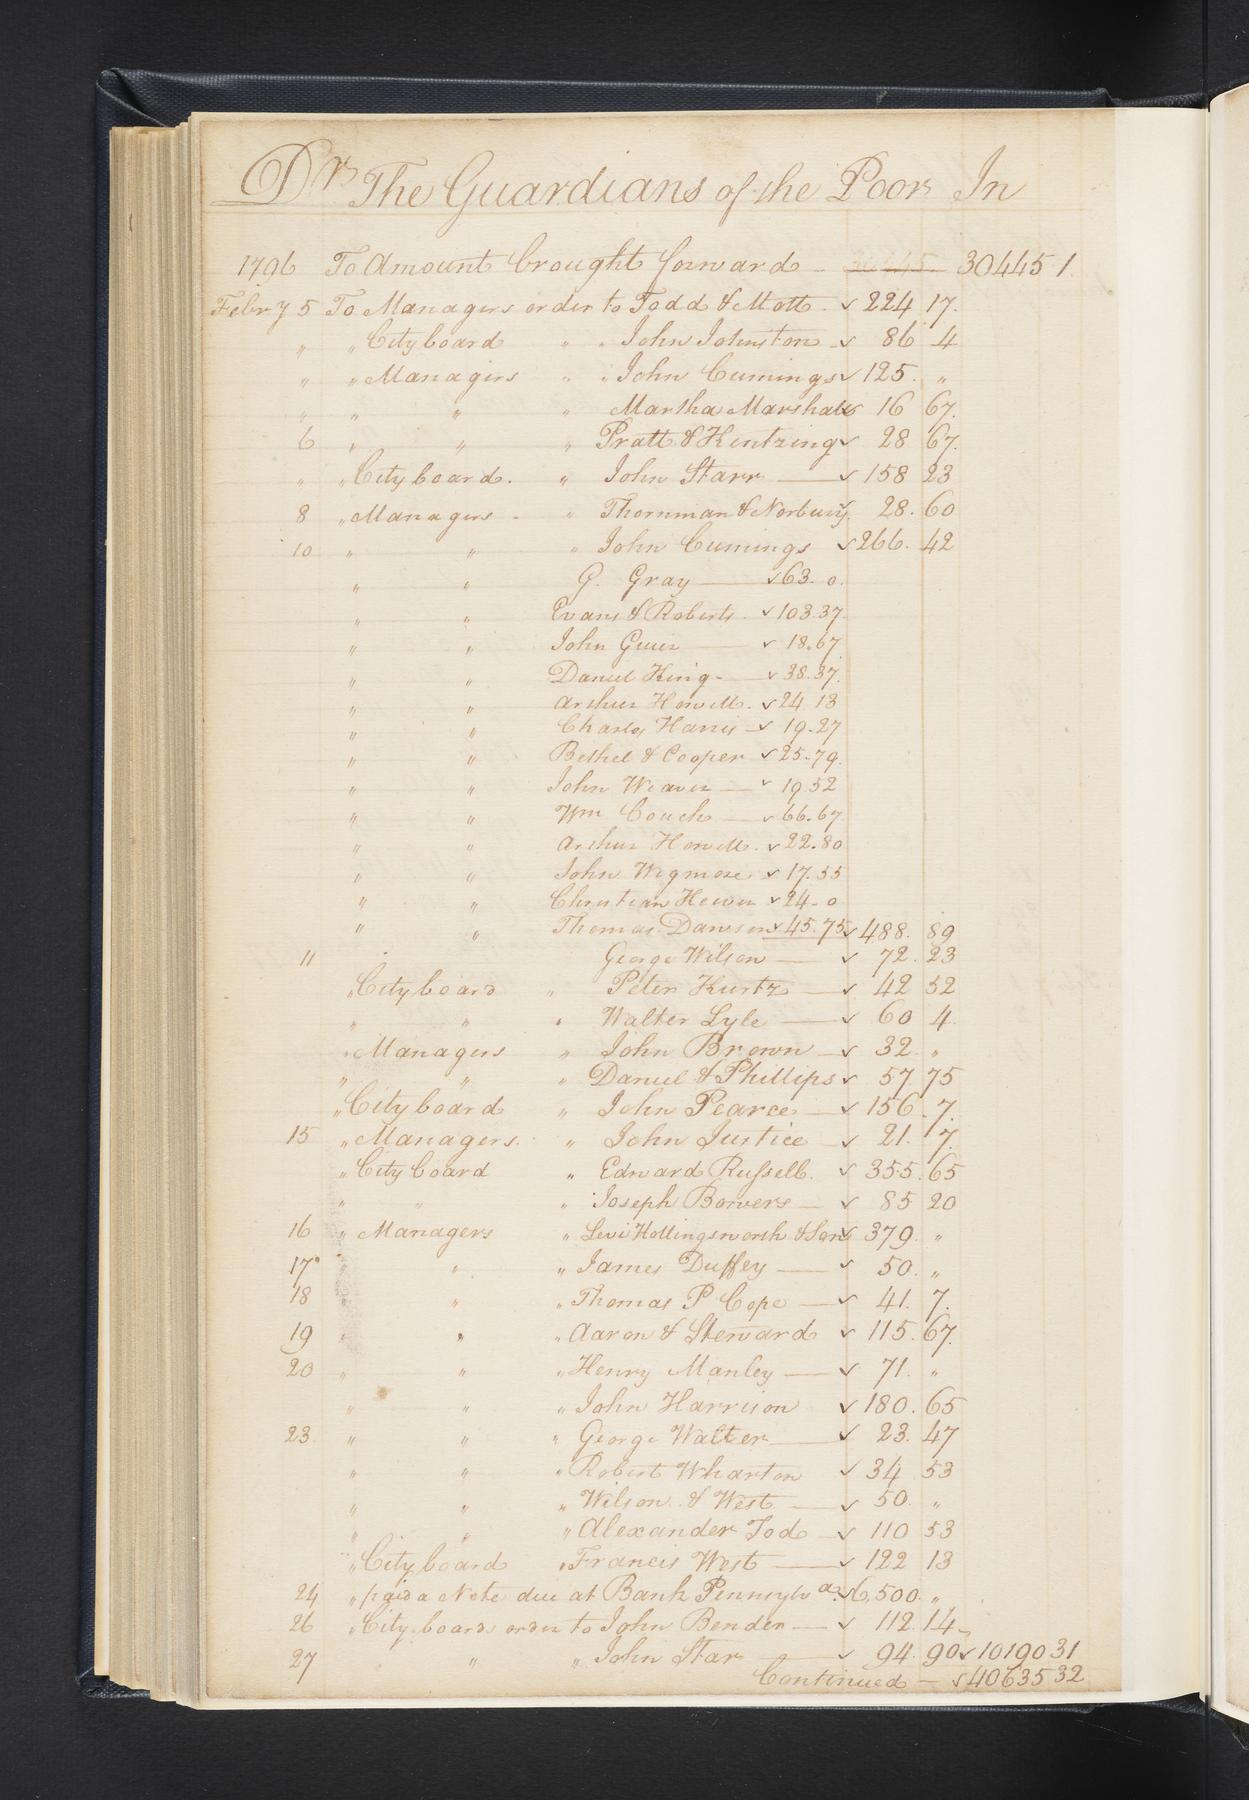 Drs The Guardians of the Poor In
1796 To Amount brought forward 30445 1
Febry 5 To Managers order to Todd & Mott 224 17
" " City board " " John Johnston 86 4
" " Managers " " John Cumings 125 "
" " " " Martha Marshall 16 67
6 " " " Pratt & Kintzing 28 67
" " City board " John Starr 158 23
8 " Managers " Thornman & Norbury 28 60
10 " " " John Cumings 266 42
" " G. Gray 63. 0
" " Evans & Roberts 103.37
" " John Guier 18.67
" " Daniel King 38.37
" " Arthur Howell 24 13
" " Charles Harris 19.27
" " Bethel & Cooper 25.79
" " John Weaver 19 52
" " Wm Couch 66.67
" " Arthur Howell 22.80
" " John Wigmore 17.55
" " Christian Hewer 24. 0
" " Thomas Dawson 45.75 488. 89
11 George Wilson 72. 23
" City board " Peter Kurtz 42 52
" " " Walter Lyle 60 4
" Managers " John Brown 32 "
" " " Daniel & Phillips 57 75
" City board " John Pearce 156 7
15 " Managers " John Justice 21. 7
" City board " Edward Russell 355 65
" " " Joseph Bowers 85 20
16 " Managers " Levi Hollingsworth & Son 379 "
17 " " " James Duffey 50 "
18 " " " Thomas P Cope 41. 7
19 " " " Aaron & Steward 115. 67
20 " " " Henry Manley 71 "
" " " John Harrison 180. 65
23 " " " George Walter 23. 47
" " " Robert Wharton 34 53
" " " Wilson & West 50 "
" " " Alexander Tod 110 53
" City board " Francis West 122 13
24 " paid a Note due at Bank Pennsylva 6,500 "
26 " City boards order to John Bender 112 14
27 " " John Star 94 90 10190 31
Continued 40635 32